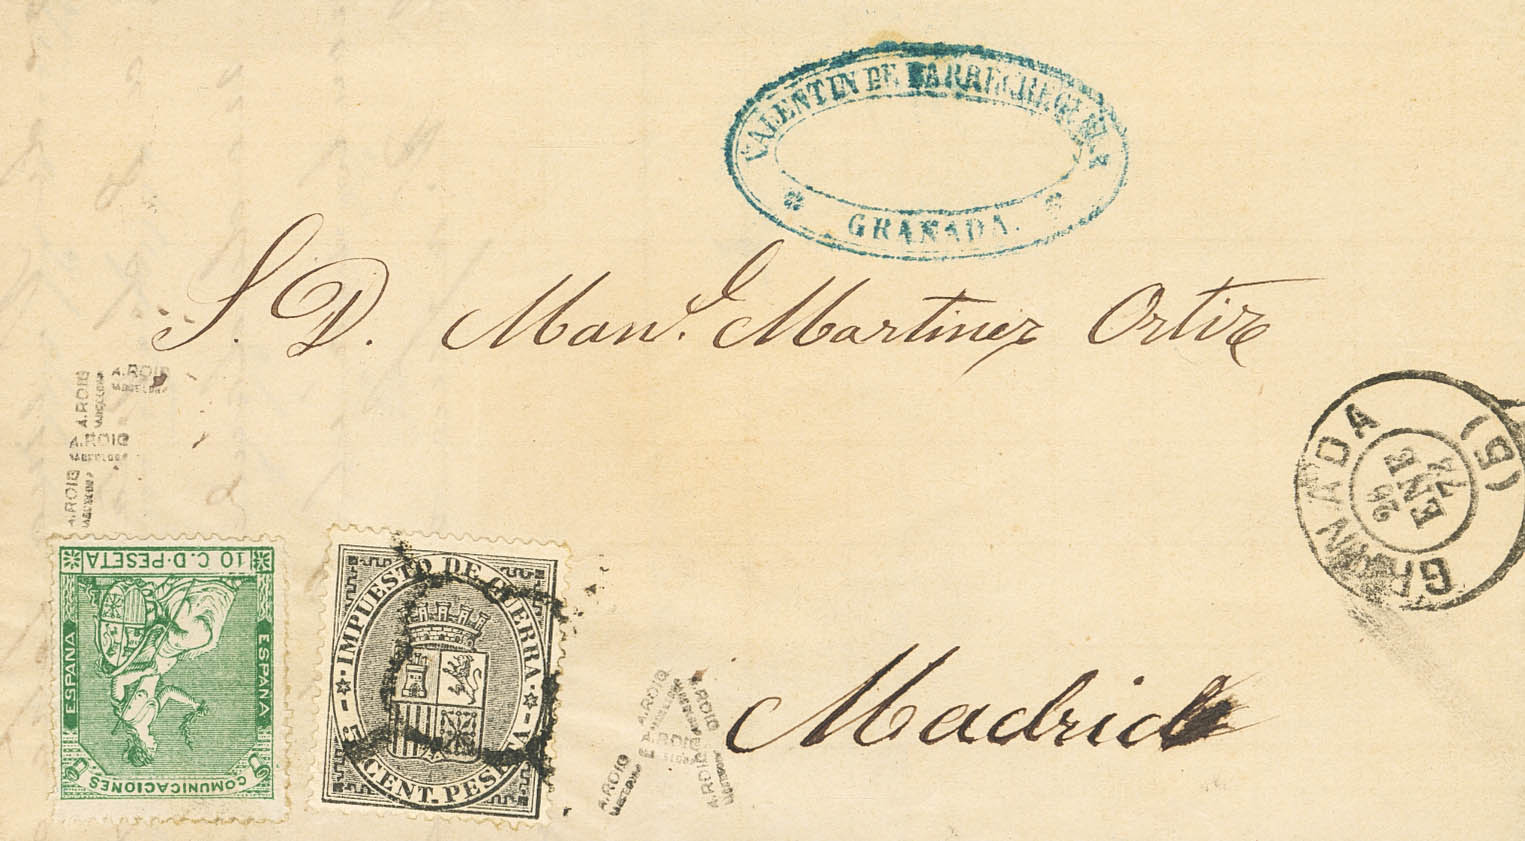 VALENTIN DE BARRECHEGUREN Y
GRANADA.
S. D. Man.l Martinez Ortiz
A.ROIG
BARCELONA
A.ROIG
BARCELONA
A.ROIG
BARCELONA
A.ROIG
BARCELONA
GRANADA
(5)
ENE
10 C. D. PESETA
ESPAÑA
ESPAÑA
COMUNICACIONES
IMPUESTO DE GUERRA
5 CENT. PESETA
A.ROIG
A.ROIG
A.ROIG
A.ROIG
A.ROIG
Madrid